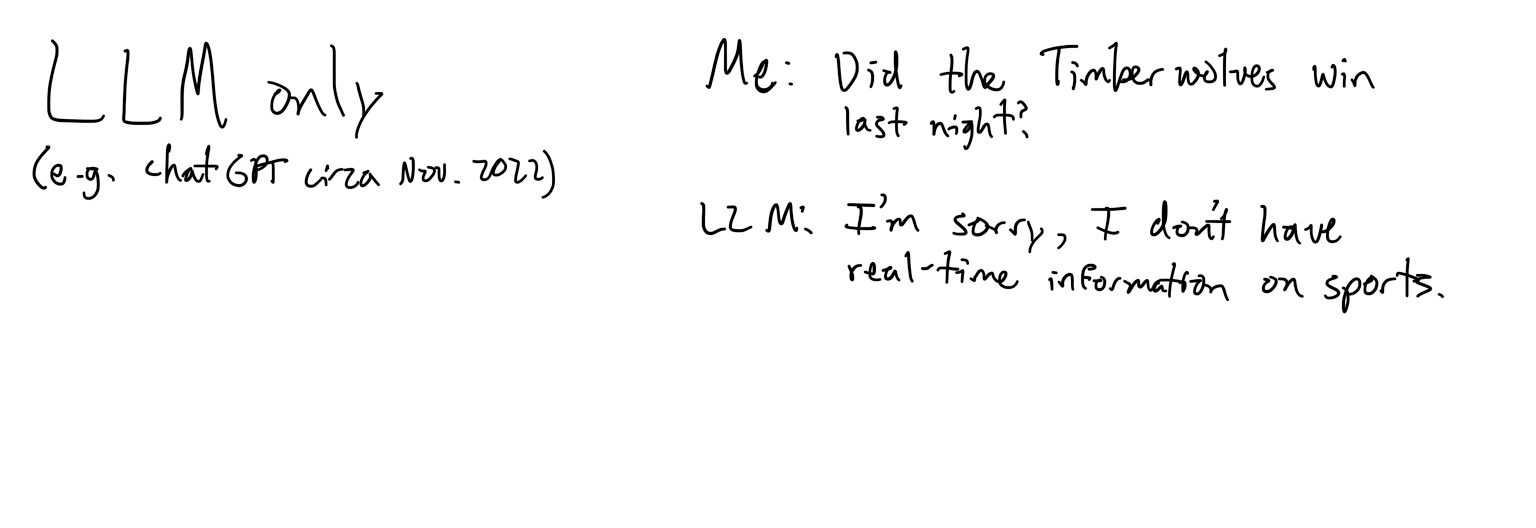 LLM only
(e.g. chatGPT circa Nov. 2022)
Me: Did the Timberwolves win
last night?
LLM: I'm sorry, I don't have
real-time information on sports.